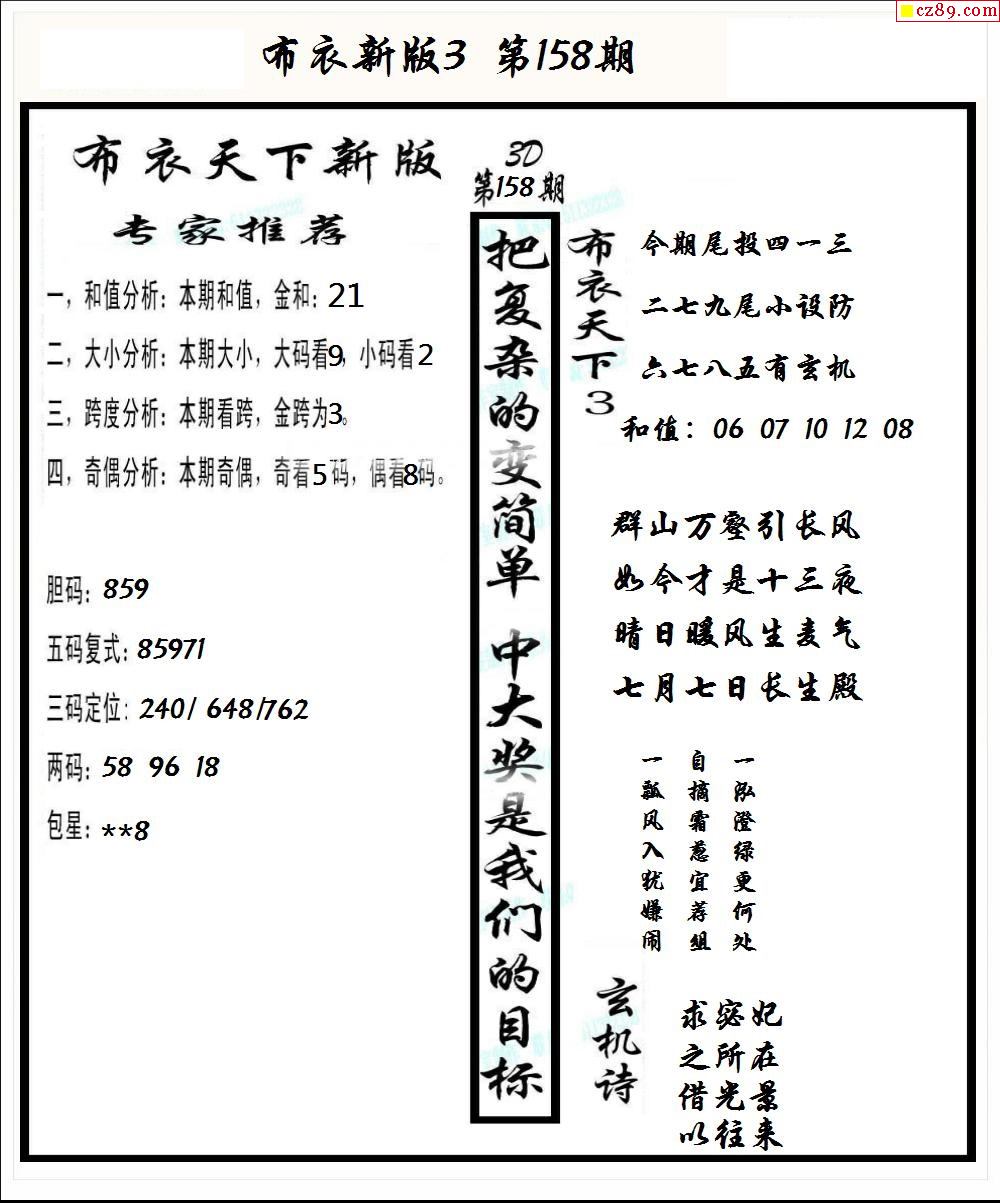 cz89.com
布衣新版3 第158期
布衣天下新版
专家推荐
一，和值分析：本期和值，金和：21
二，大小分析：本期大小，大码看9，小码看2
三，跨度分析：本期看跨，金跨为3。
四，奇偶分析：本期奇偶，奇看5码，偶看8码。
胆码：859
五码复式：85971
三码定位：240/ 648/762
两码：58 96 18
包星：**8
3D
第158期
把复杂的变简单 中大奖是我们的目标
布衣天下3
今期尾投四一三
二七九尾小设防
六七八五有玄机
和值：06 07 10 12 08
群山万壑引长风
如今才是十三夜
晴日暖风生麦气
七月七日长生殿
一泓澄绿更何处
自摘霜葱宜荐组
一瓢风入犹嫌闹
玄机诗
求宓妃
之所在
借光景
以往来